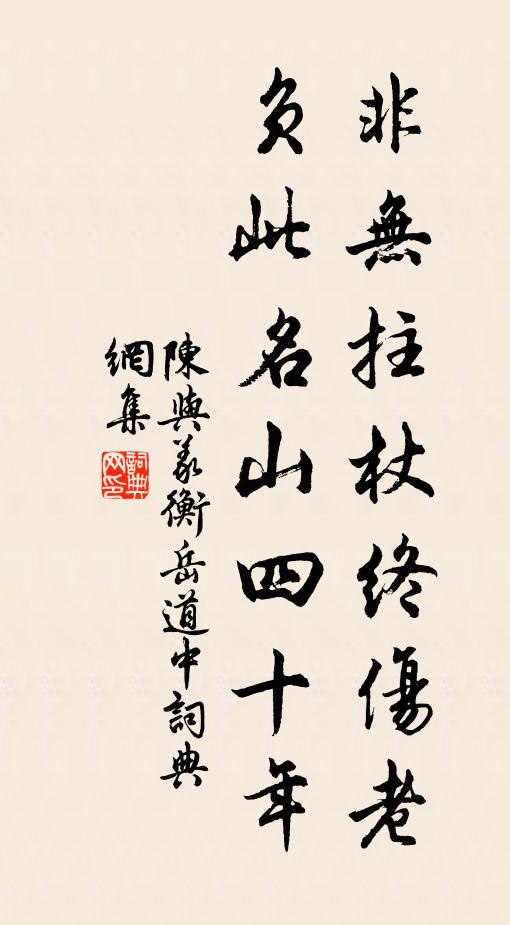 非無拄杖終傷老
負此名山四十年
陳與義衡岳道中詞典
網集
詞典
网印